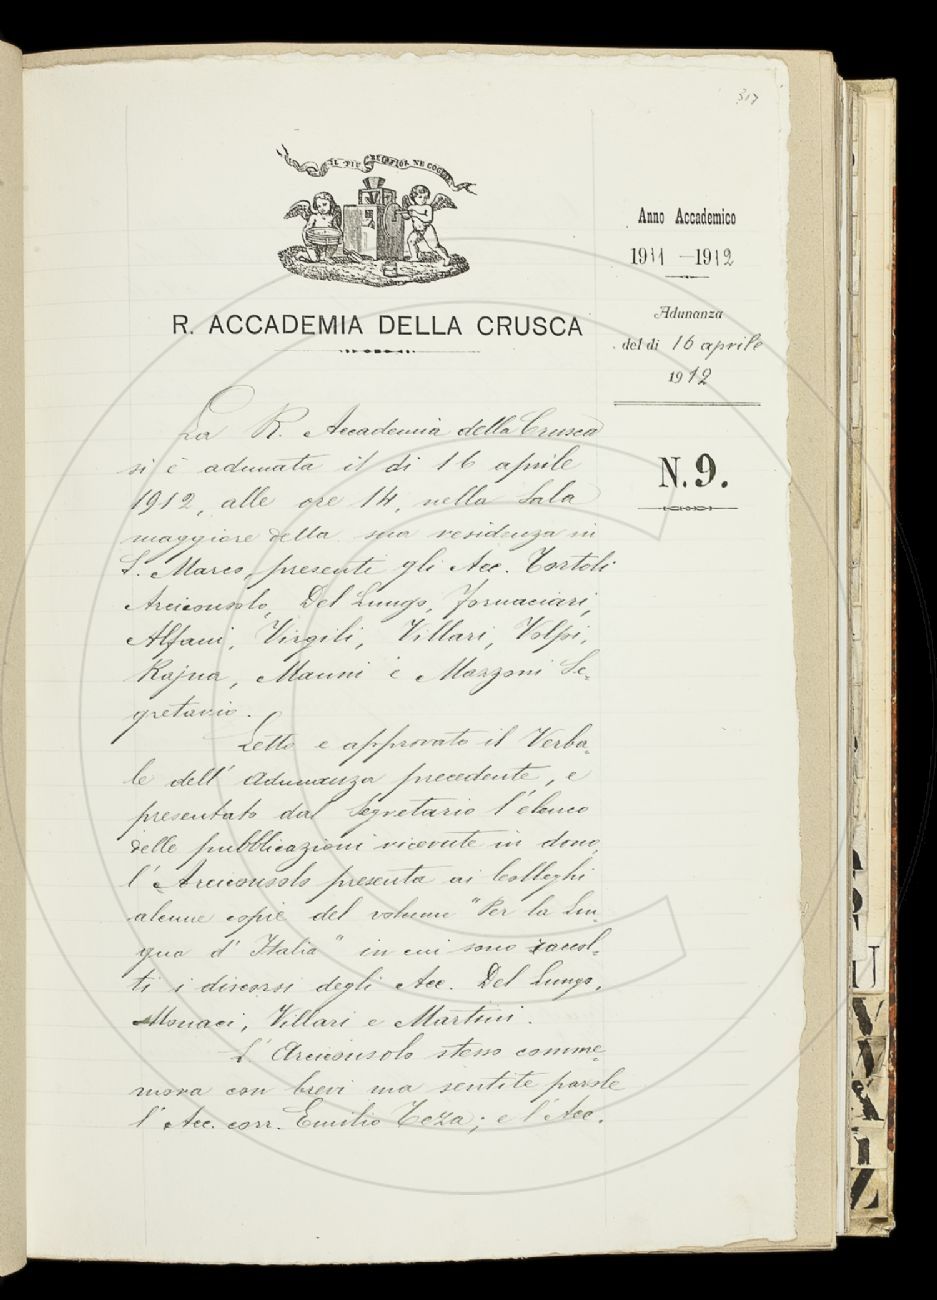 317
IL PIÙ BEL FIOR NE COGLIE
R. ACCADEMIA DELLA CRUSCA
Anno Accademico
1911 - 1912
Adunanza
del dì 16 aprile
1912
N. 9.
La R. Accademia della Crusca
si è adunata il dì 16 aprile
1912, alle ore 14, nella Sala
maggiore della sua residenza in
S. Marco, presenti gli Acc. Tortoli
Arciconsolo, Del Lungo, Fornaciari,
Alfani, Virgili, Villari, Volpi,
Rajna, Manni e Mazzoni Se-
gretario.
Letto e approvato il Verba-
le dell' Adunanza precedente, e
presentato dal Segretario l'elenco
delle pubblicazioni ricevute in dono,
l' Arciconsolo presenta ai Colleghi
alcune copie del volume "Per la Lin-
gua d' Italia" in cui sono raccol-
ti i discorsi degli Acc. Del Lungo,
Monaci, Villari e Martini.
L' Arciconsolo stesso comme-
mora con brevi ma sentite parole
l' Acc. corr. Emilio Teza; e l' Acc.